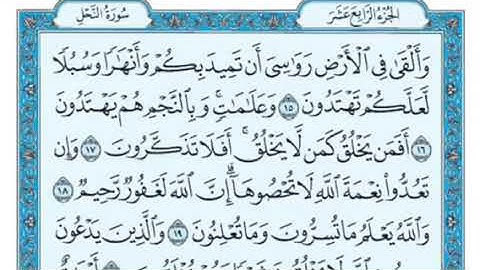 الجزء الرابع عشر
سورة النحل
وَأَلْقَىٰ فِي ٱلْأَرْضِ رَوَٰسِيَ أَن تَمِيدَ بِكُمْ وَأَنْهَٰرًا وَسُبُلًا
لَّعَلَّكُمْ تَهْتَدُونَ ١٥ وَعَلَٰمَٰتٍ ۚ وَبِٱلنَّجْمِ هُمْ يَهْتَدُونَ
١٦ أَفَمَن يَخْلُقُ كَمَن لَّا يَخْلُقُ ۗ أَفَلَا تَذَكَّرُونَ ١٧ وَإِن
تَعُدُّوا۟ نِعْمَةَ ٱللَّهِ لَا تُحْصُوهَآ ۗ إِنَّ ٱللَّهَ لَغَفُورٌ رَّحِيمٌ ١٨
وَٱللَّهُ يَعْلَمُ مَا تُسِرُّونَ وَمَا تُعْلِنُونَ ١٩ وَٱلَّذِينَ يَدْعُونَ